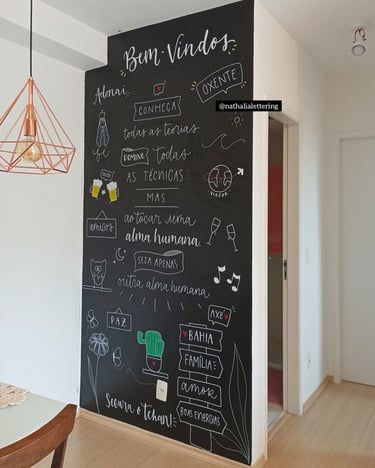 Bem-Vindos
Adonai
OXENTE
@nathalialettering
CONHEÇA
todas as teorias
DOMINE todas
AS TÉCNICAS
MAS
ao tocar uma
amigos
alma humana
SEJA APENAS
outra alma humana
PAZ
AXÉ
BAHIA
FAMÍLIA
amor
BOAS ENERGIAS
Segura o tchan!